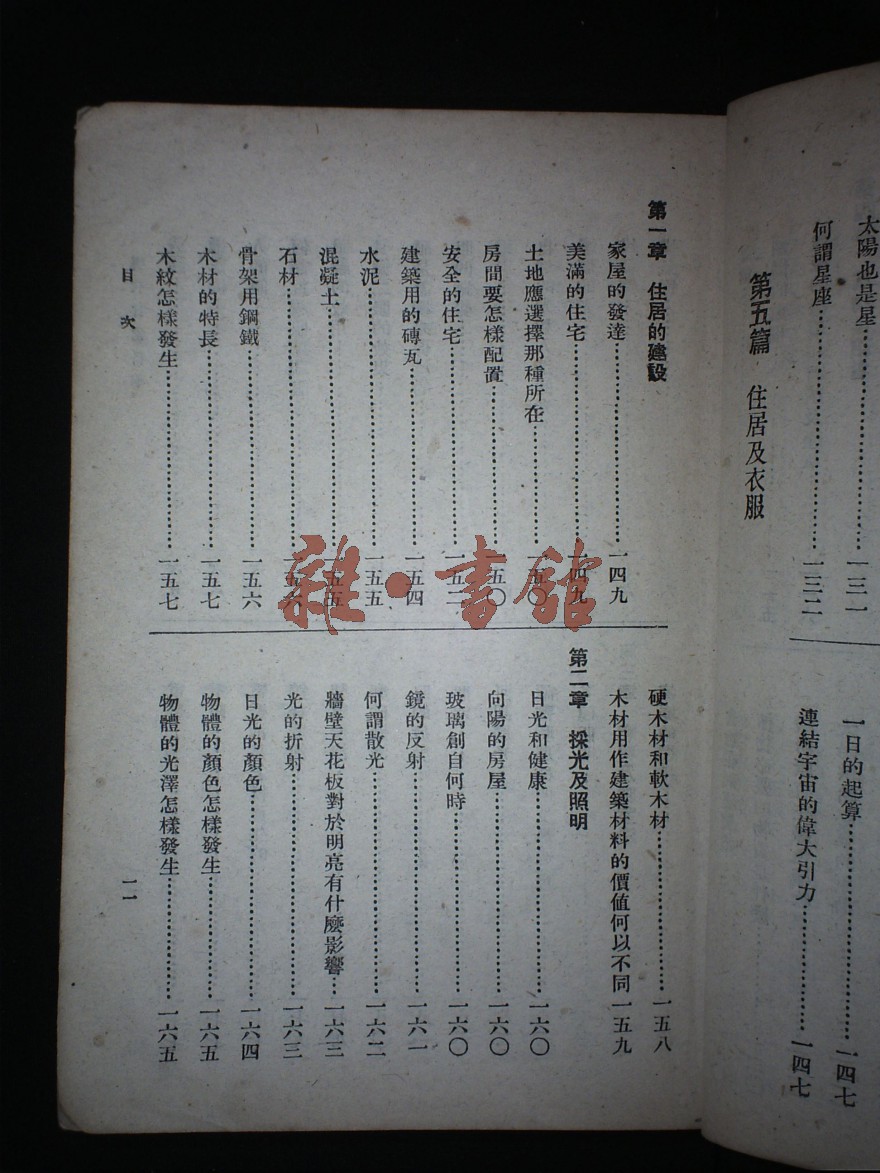 太陽也是星……一三一
何謂星座……一三二
一日的起算……一四七
連結宇宙的偉大引力……一四七
第五篇 住居及衣服
第一章 住居的建設
家屋的發達……一四九
美滿的住宅……一四九
土地應選擇那種所在……一五〇
房間要怎樣配置……一五〇
安全的住宅……一五二
建築用的磚瓦……一五四
水泥……一五五
混凝土……一五五
石材……一五六
骨架用鋼鐵……一五六
木材的特長……一五七
木紋怎樣發生……一五七
硬木材和軟木材……一五八
木材用作建築材料的價值何以不同一五九
第二章 採光及照明
日光和健康……一六〇
向陽的房屋……一六〇
玻璃創自何時……一六〇
鏡的反射……一六一
何謂散光……一六二
牆壁天花板對於明亮有什麼影響…一六三
光的折射……一六三
日光的顏色……一六四
物體的顏色怎樣發生……一六五
物體的光澤怎樣發生……一六五
目次
一一
雜·書館